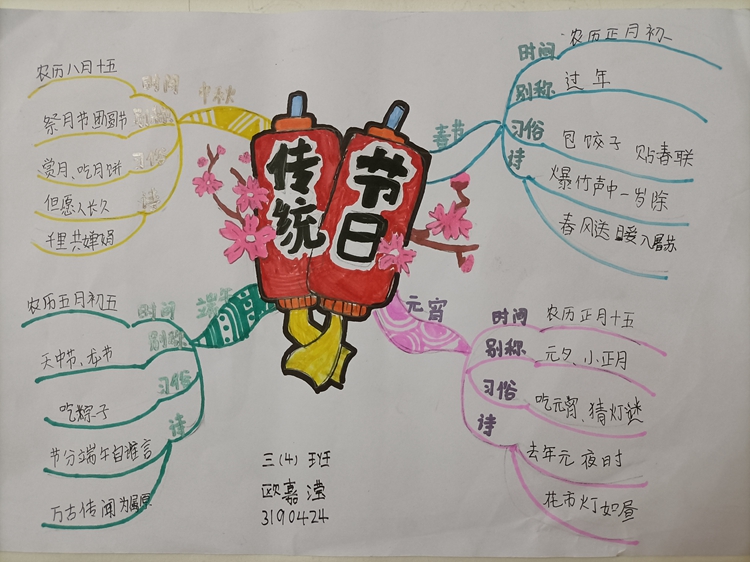 传统
节日
中秋
时间
农历八月十五
别称
祭月节 团圆节
习俗
赏月、吃月饼
诗
但愿人长久
千里共婵娟
春节
时间
农历正月初一
别称
过年
习俗
包饺子 贴春联
诗
爆竹声中一岁除
春风送暖入屠苏
端午
时间
农历五月初五
别称
天中节、龙节
习俗
吃粽子
诗
节分端午自谁言
万古传闻为屈原
元宵
时间
农历正月十五
别称
元夕、小正月
习俗
吃元宵、猜灯谜
诗
去年元夜时
花市灯如昼
三(4)班
欧嘉滢
3190424